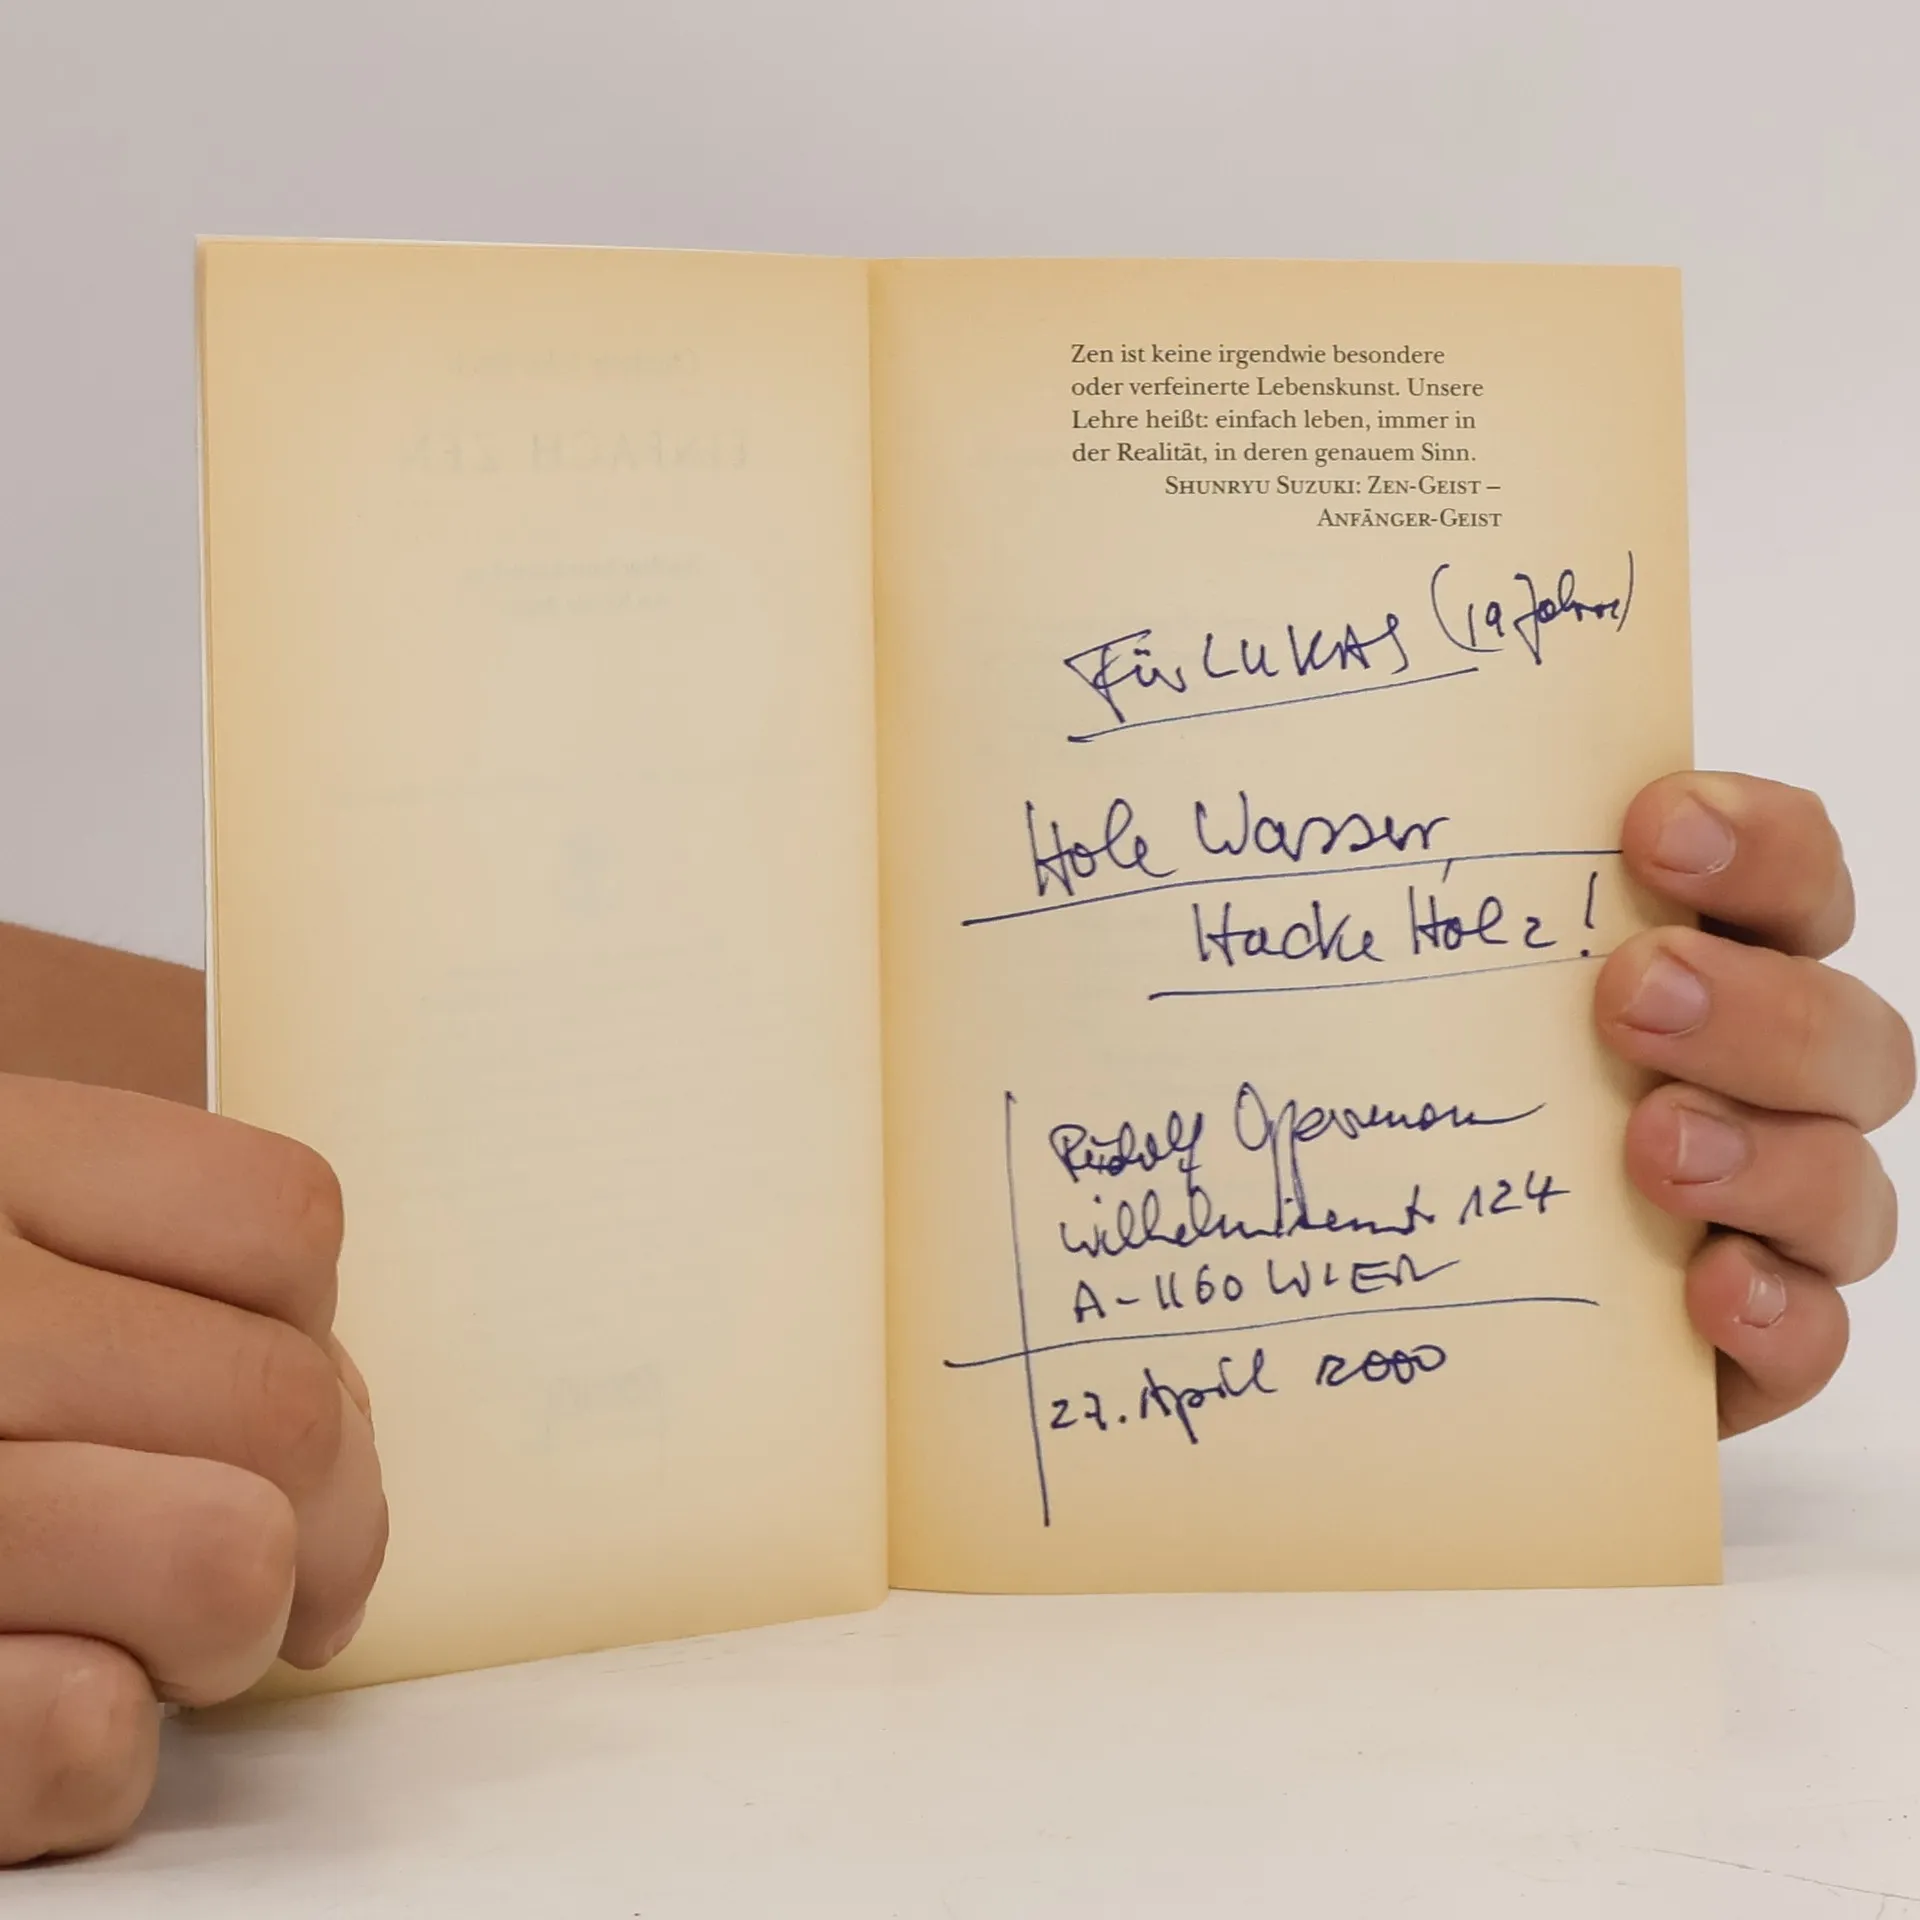 EINFACH ZEN
Zen ist keine irgendwie besondere
oder verfeinerte Lebenskunst. Unsere
Lehre heißt: einfach leben, immer in
der Realität, in deren genauem Sinn.
SHUNRYU SUZUKI: ZEN-GEIST –
ANFÄNGER-GEIST
Für LUKAS (19 Jahre)
Hole Wasser,
Hacke Holz!
Rudolf
124
A-1160 WIEN
27. April 2000